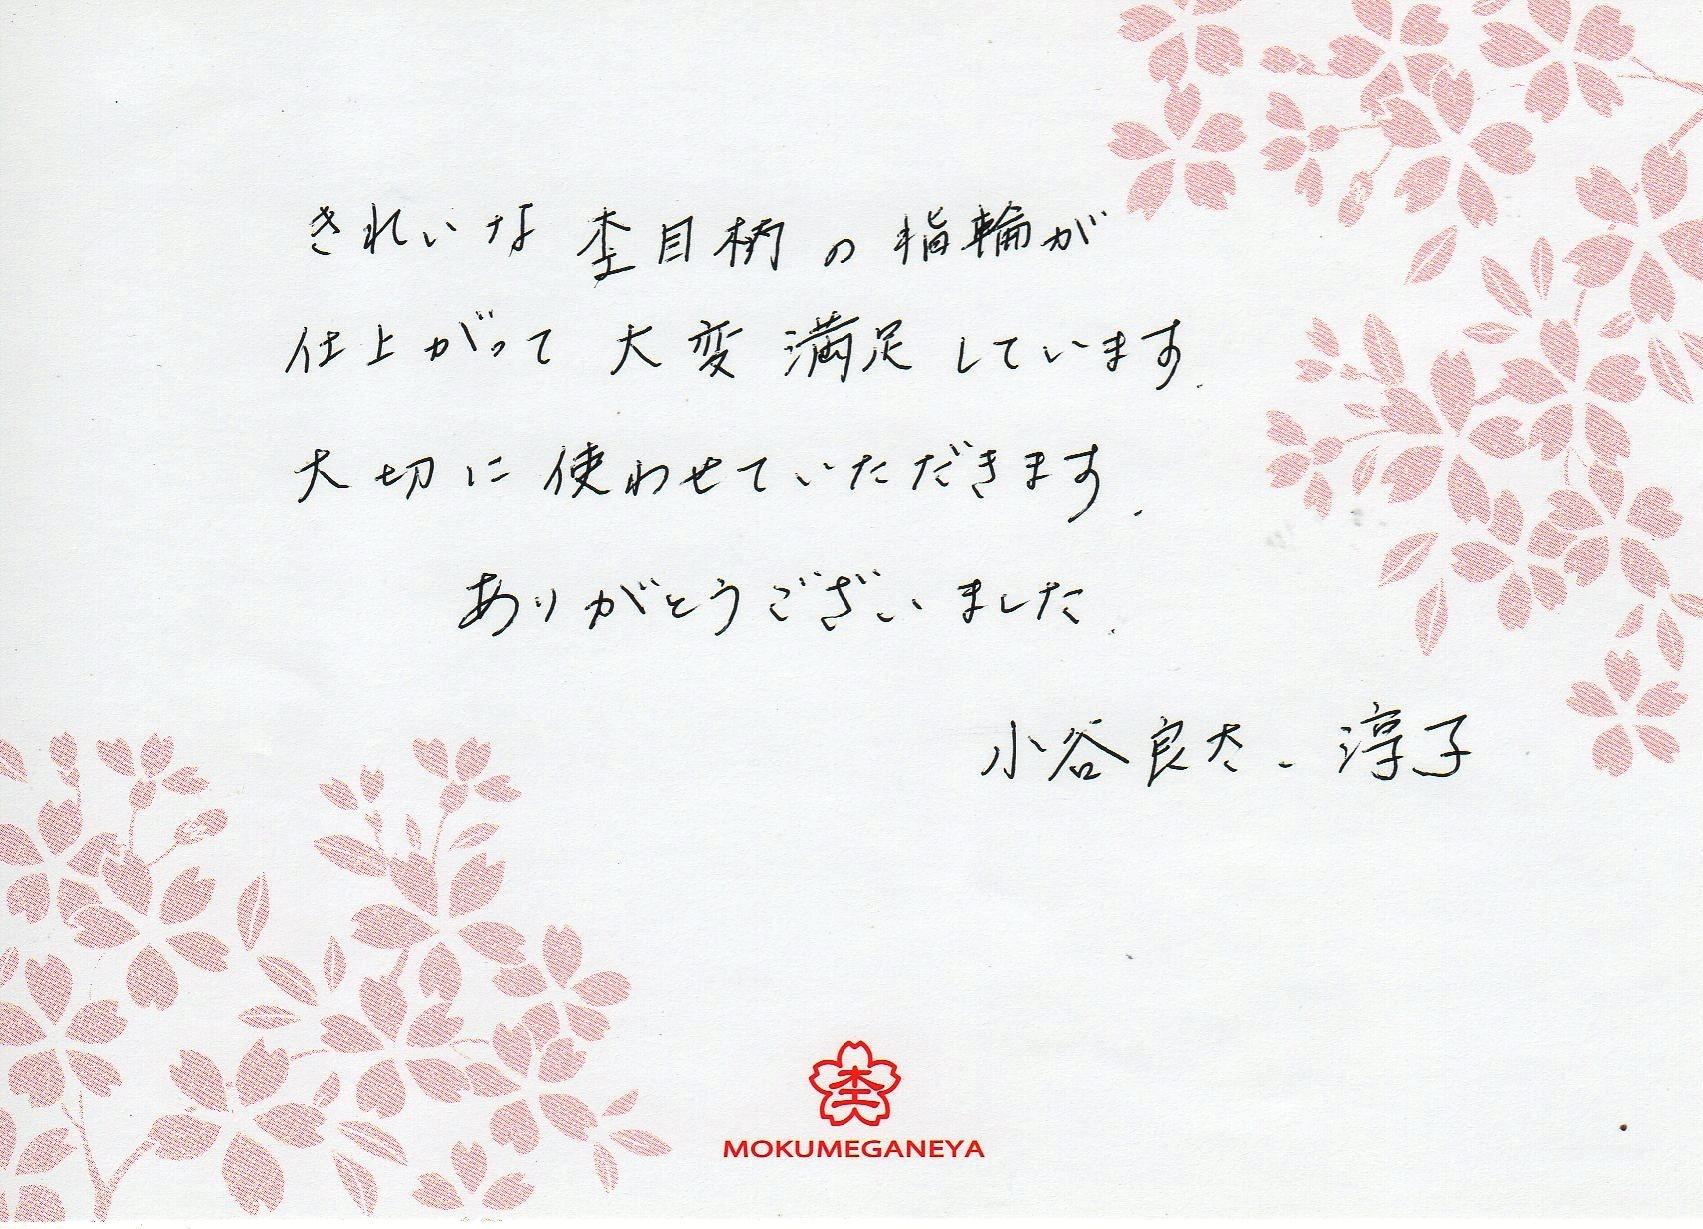 きれいな 杢目柄の指輪が
仕上がって 大変 満足しています.
大切に使わせていただきます.
ありがとうございました.
小谷良太、淳子
杢
MOKUMEGANEYA